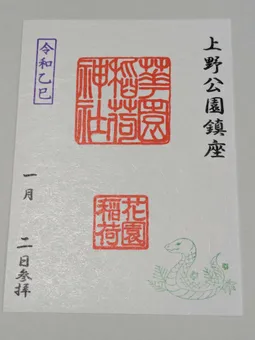 上野公園鎮座
華園
稲荷
神社
花園
稲荷
令和乙巳
一月 二日参拝